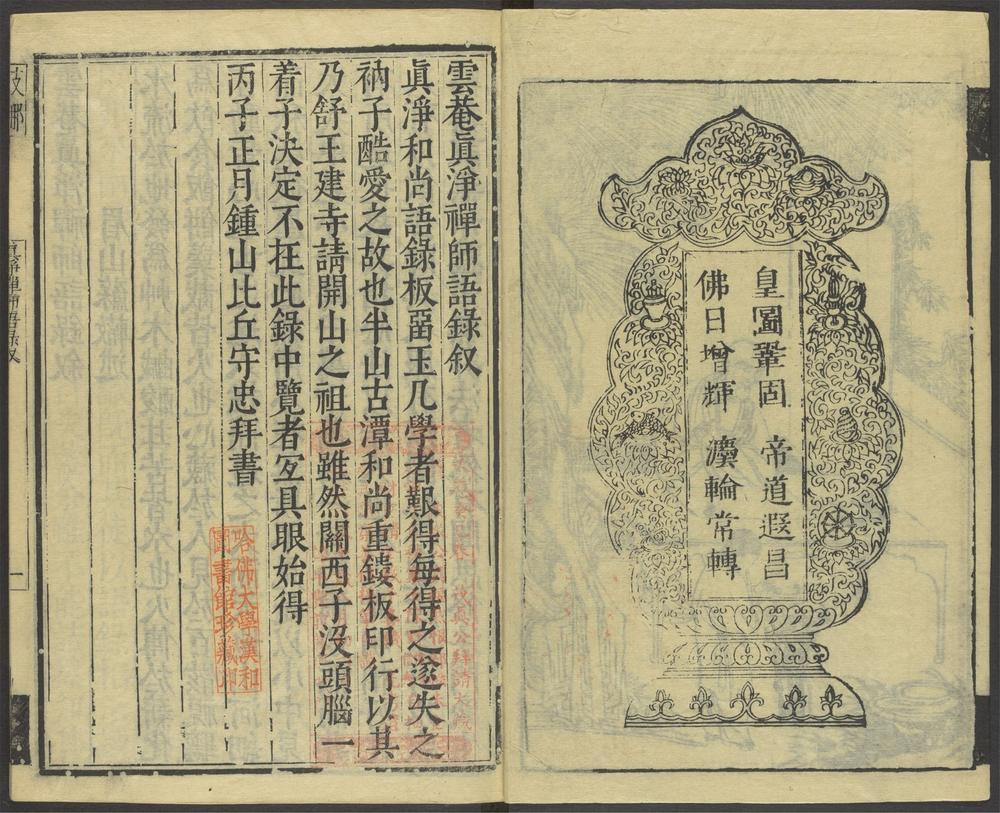 皇圖鞏固　帝道遐昌
佛日增輝　灋輪常轉
雲菴眞淨禪師語錄叙
眞淨和尚語錄板留玉几學者艱得每得之遂失之
衲子酷愛之故也半山古潭和尚重鏤板印行以其
乃舒王建寺請開山之祖也雖然關西子没頭腦一
着子決定不在此錄中覽者宐具眼始得
丙子正月鍾山比丘守忠拜書
哈佛大學漢和
圖書館珍藏印